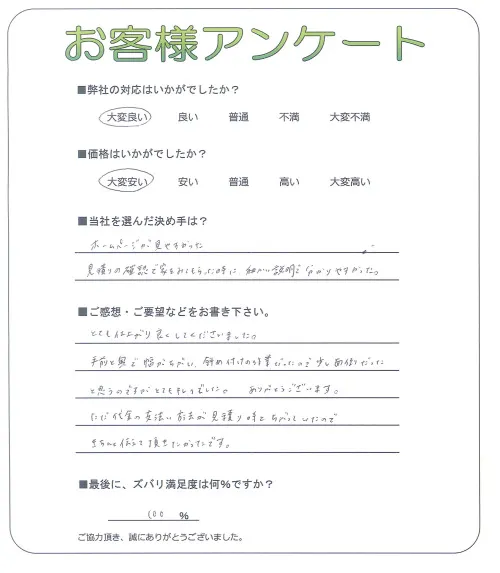 お客様アンケート
■弊社の対応はいかがでしたか？
大変良い 良い 普通 不満 大変不満
■価格はいかがでしたか？
大変安い 安い 普通 高い 大変高い
■当社を選んだ決め手は？
ホームページが見やすかった
見積りの確認で家をみてもらった時に 細かい説明で分かりやすかった。
■ご感想・ご要望などをお書き下さい。
とても仕上がり良くしてくださいました。
手前と奥で幅がちがい、斜め付けの作業だったので少し面倒だった
と思うのですがとてもキレイでした。 ありがとうございます。
ただ代金の支払い方法が見積り時とちがってしたので
きちんと伝えて頂きたかったです。
■最後に、ズバリ満足度は何％ですか？
100 ％
ご協力頂き、誠にありがとうございました。